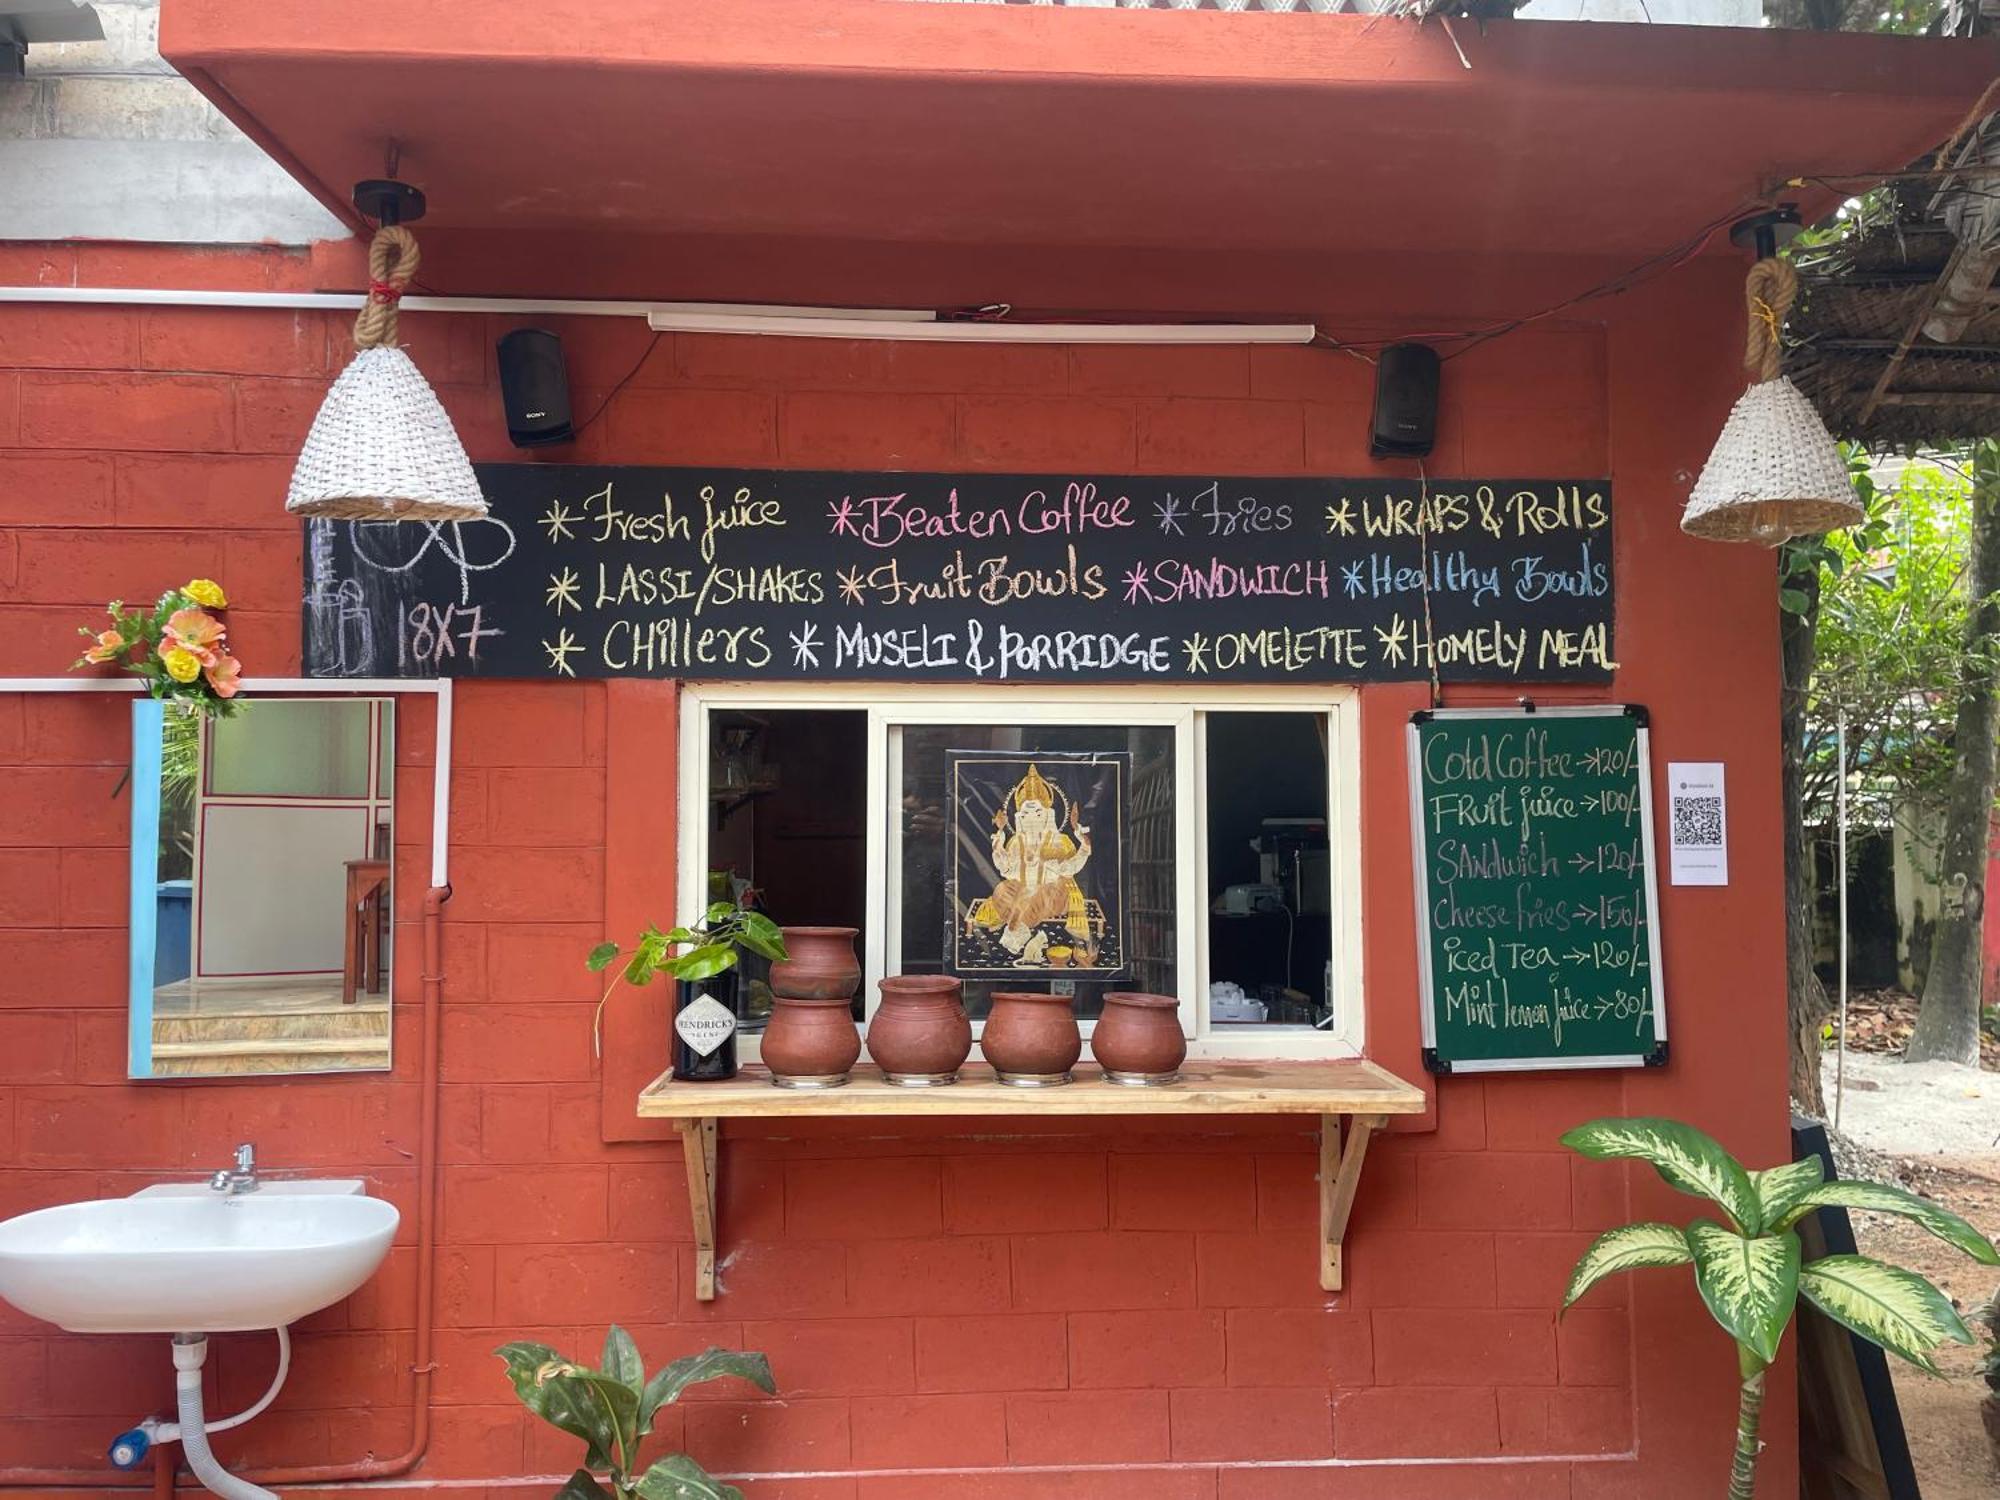 SONY
SONY
*Fresh juice *Beaten Coffee *Fries *WRAPS & Rolls
*LASSI/SHAKES *Fruit Bowls *SANDWICH *Healthy Bowls
18X7 *CHillers *MUSELI & PORRIDGE *OMELETTE *HOMELY MEAL
Cold Coffee →120/-
FRuit juice →100/-
SANdwich →120/-
Cheese fries →150/-
iced Tea →120/-
Mint lemon juice →80/-
HENDRICK'S